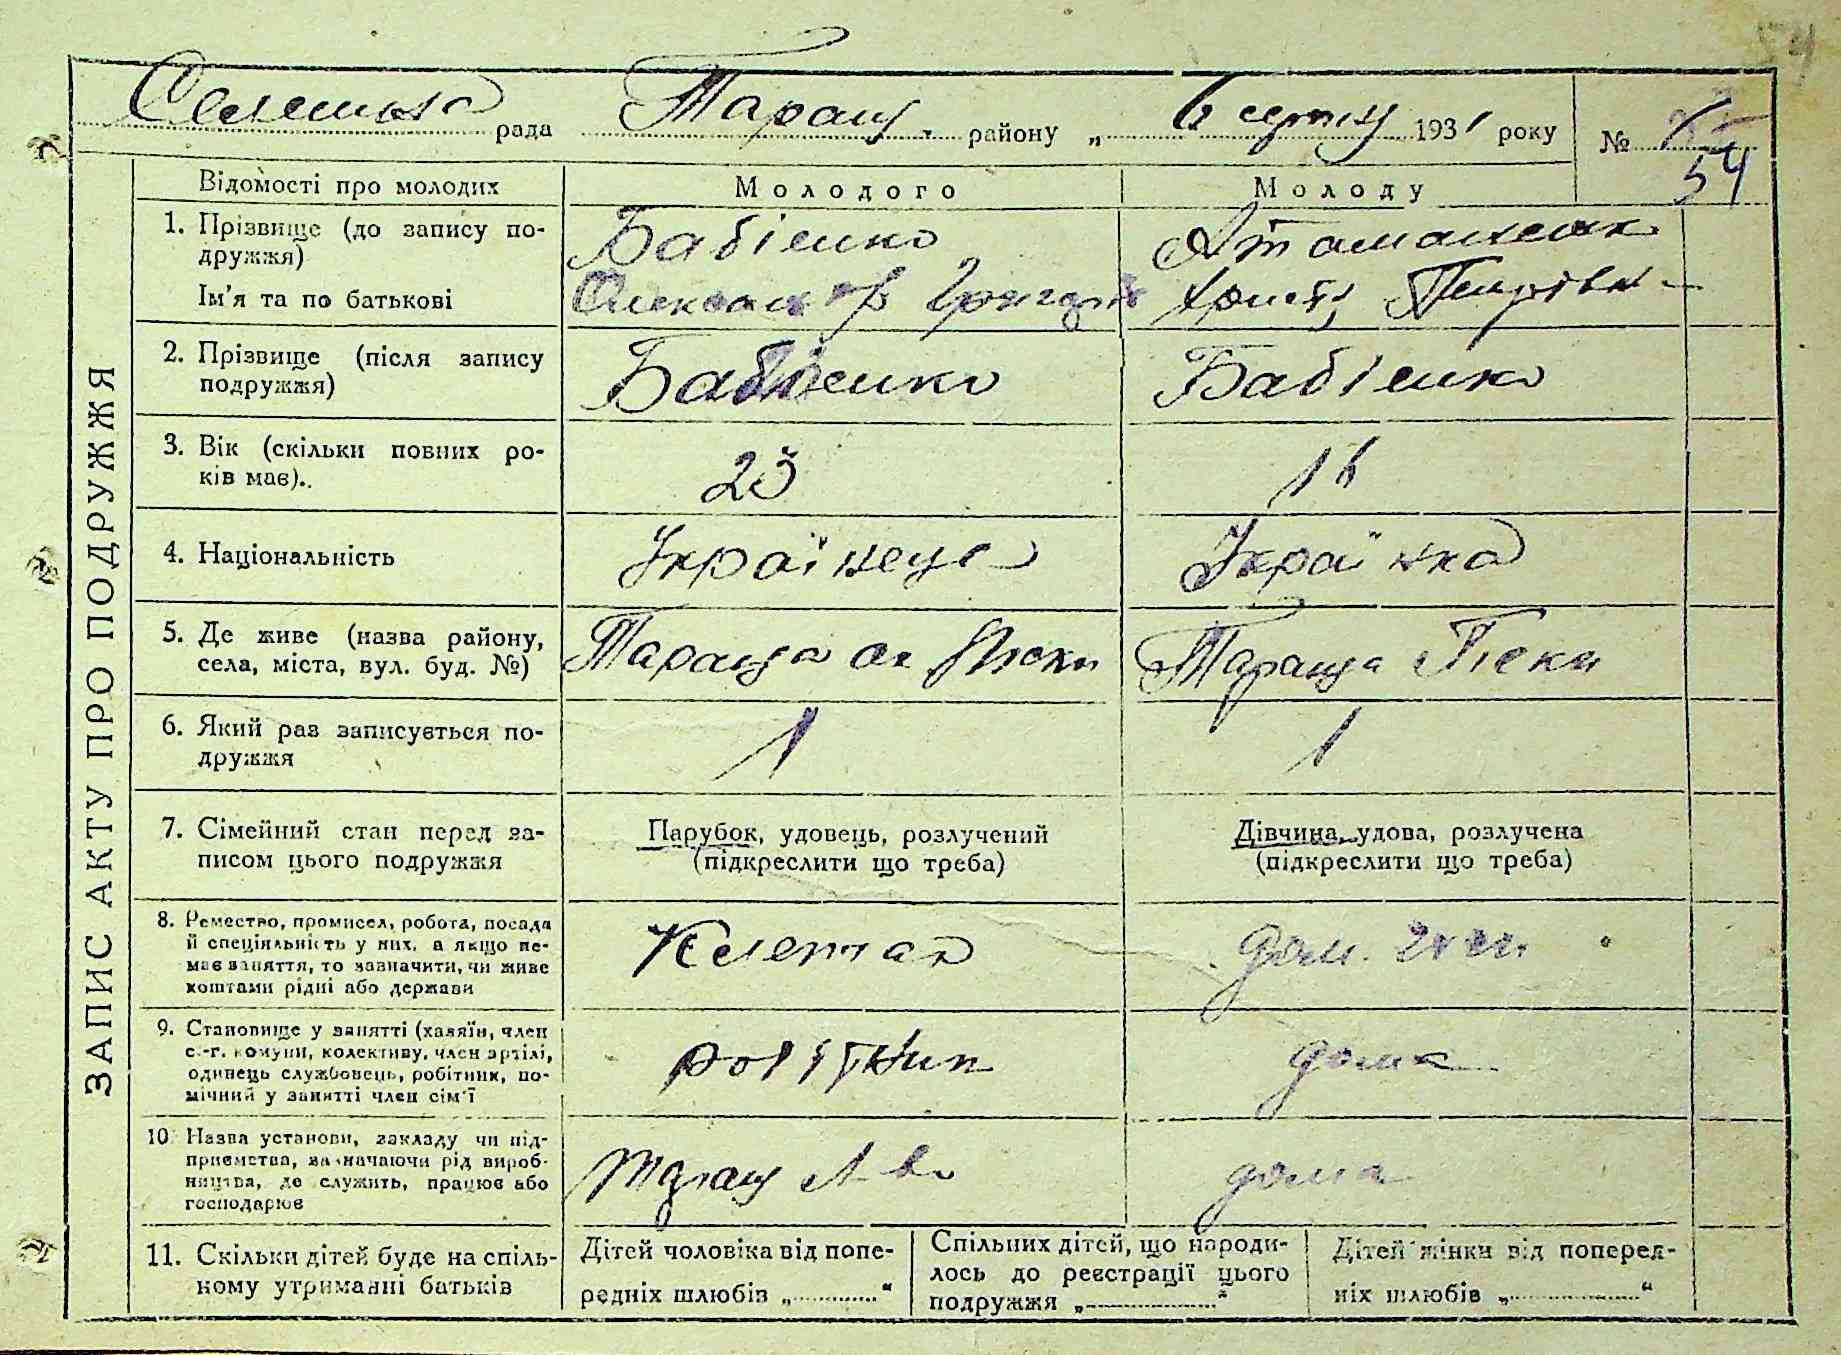 54
Селешна рада Таращ. району „ 6 серпну 1931 року № 54
ЗАПИС АКТУ ПРО ПОДРУЖЖЯ
Відомості про молодих Молодого Молоду
1. Прізвище (до запису по- Бабієнко
дружжя)
Ім'я та по батькові Олександр Христя Петрівн
2. Прізвище (після запису Бабієнко Бабієнко
подружжя)
3. Вік (скільки повних ро- 23
ків має)..
4. Національність Українець Українка
5. Де живе (назва району, Тараща Піски Тараща Піски
села, міста, вул. буд. №)
6. Який раз записується по- 1 1
дружжя
7. Сімейний стан перед за- Парубок, удовець, розлучений Дівчина, удова, розлучена
писом цього подружжя (підкреслити що треба) (підкреслити що треба)
8. Ремество, промисел, робота, посада
й спеціяльність у них, а якщо не-
має заняття, то зазначити, чи живе
коштами рідні або держави
9. Становище у занятті (хазяїн, член робітник дома
с.-г. комуни, колективу, член артілі,
одинець службовець, робітник, по-
мічний у занятті член сім'ї
10 Назва установи, закладу чи під- дома
приємства, зазначаючи рід вироб-
ництва, де служить, працює або
господарює
11. Скільки дітей буде на спіль-
ному утриманні батьків
Дітей чоловіка від попе-
редніх шлюбів „ “
Спільних дітей, що народи-
лось до реєстрації цього
подружжя „ “
Дітей жінки від поперед-
ніх шлюбів „ “